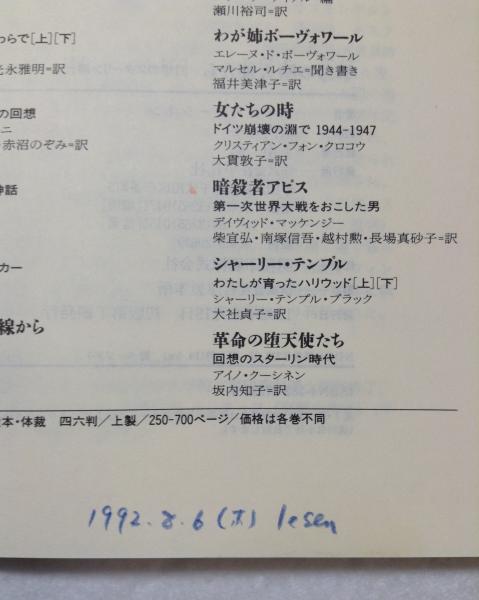 瀬川裕司=訳
わが姉ボーヴォワール
エレーヌ・ド・ボーヴォワール
マルセル・ルチエ=聞き書き
福井美津子=訳
女たちの時
ドイツ崩壊の淵で 1944-1947
クリスティアン・フォン・クロコウ
大貫敦子=訳
暗殺者アピス
第一次世界大戦をおこした男
デイヴィッド・マッケンジー
柴宜弘・南塚信吾・越村勲・長場真砂子=訳
シャーリー・テンプル
わたしが育ったハリウッド[上][下]
シャーリー・テンプル・ブラック
大社貞子=訳
革命の堕天使たち
回想のスターリン時代
アイノ・クーシネン
坂内知子=訳
わらで[上][下]
光永雅明=訳
の回想
ニ
・赤沼のぞみ=訳
神話
カー
線から
本・体裁 四六判/上製/250-700ページ/価格は各巻不同
1992.8.6(木) lesen